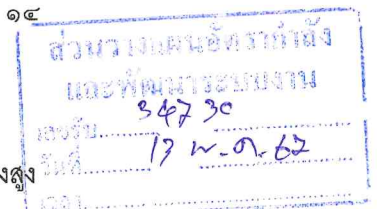 ๑๔
ส่วนวางแผนอัตรากำลัง
และพัฒนาระบบงาน
เลขรับ.............
วันที่ 17 พ.ค. 62
งสูง
เวลา